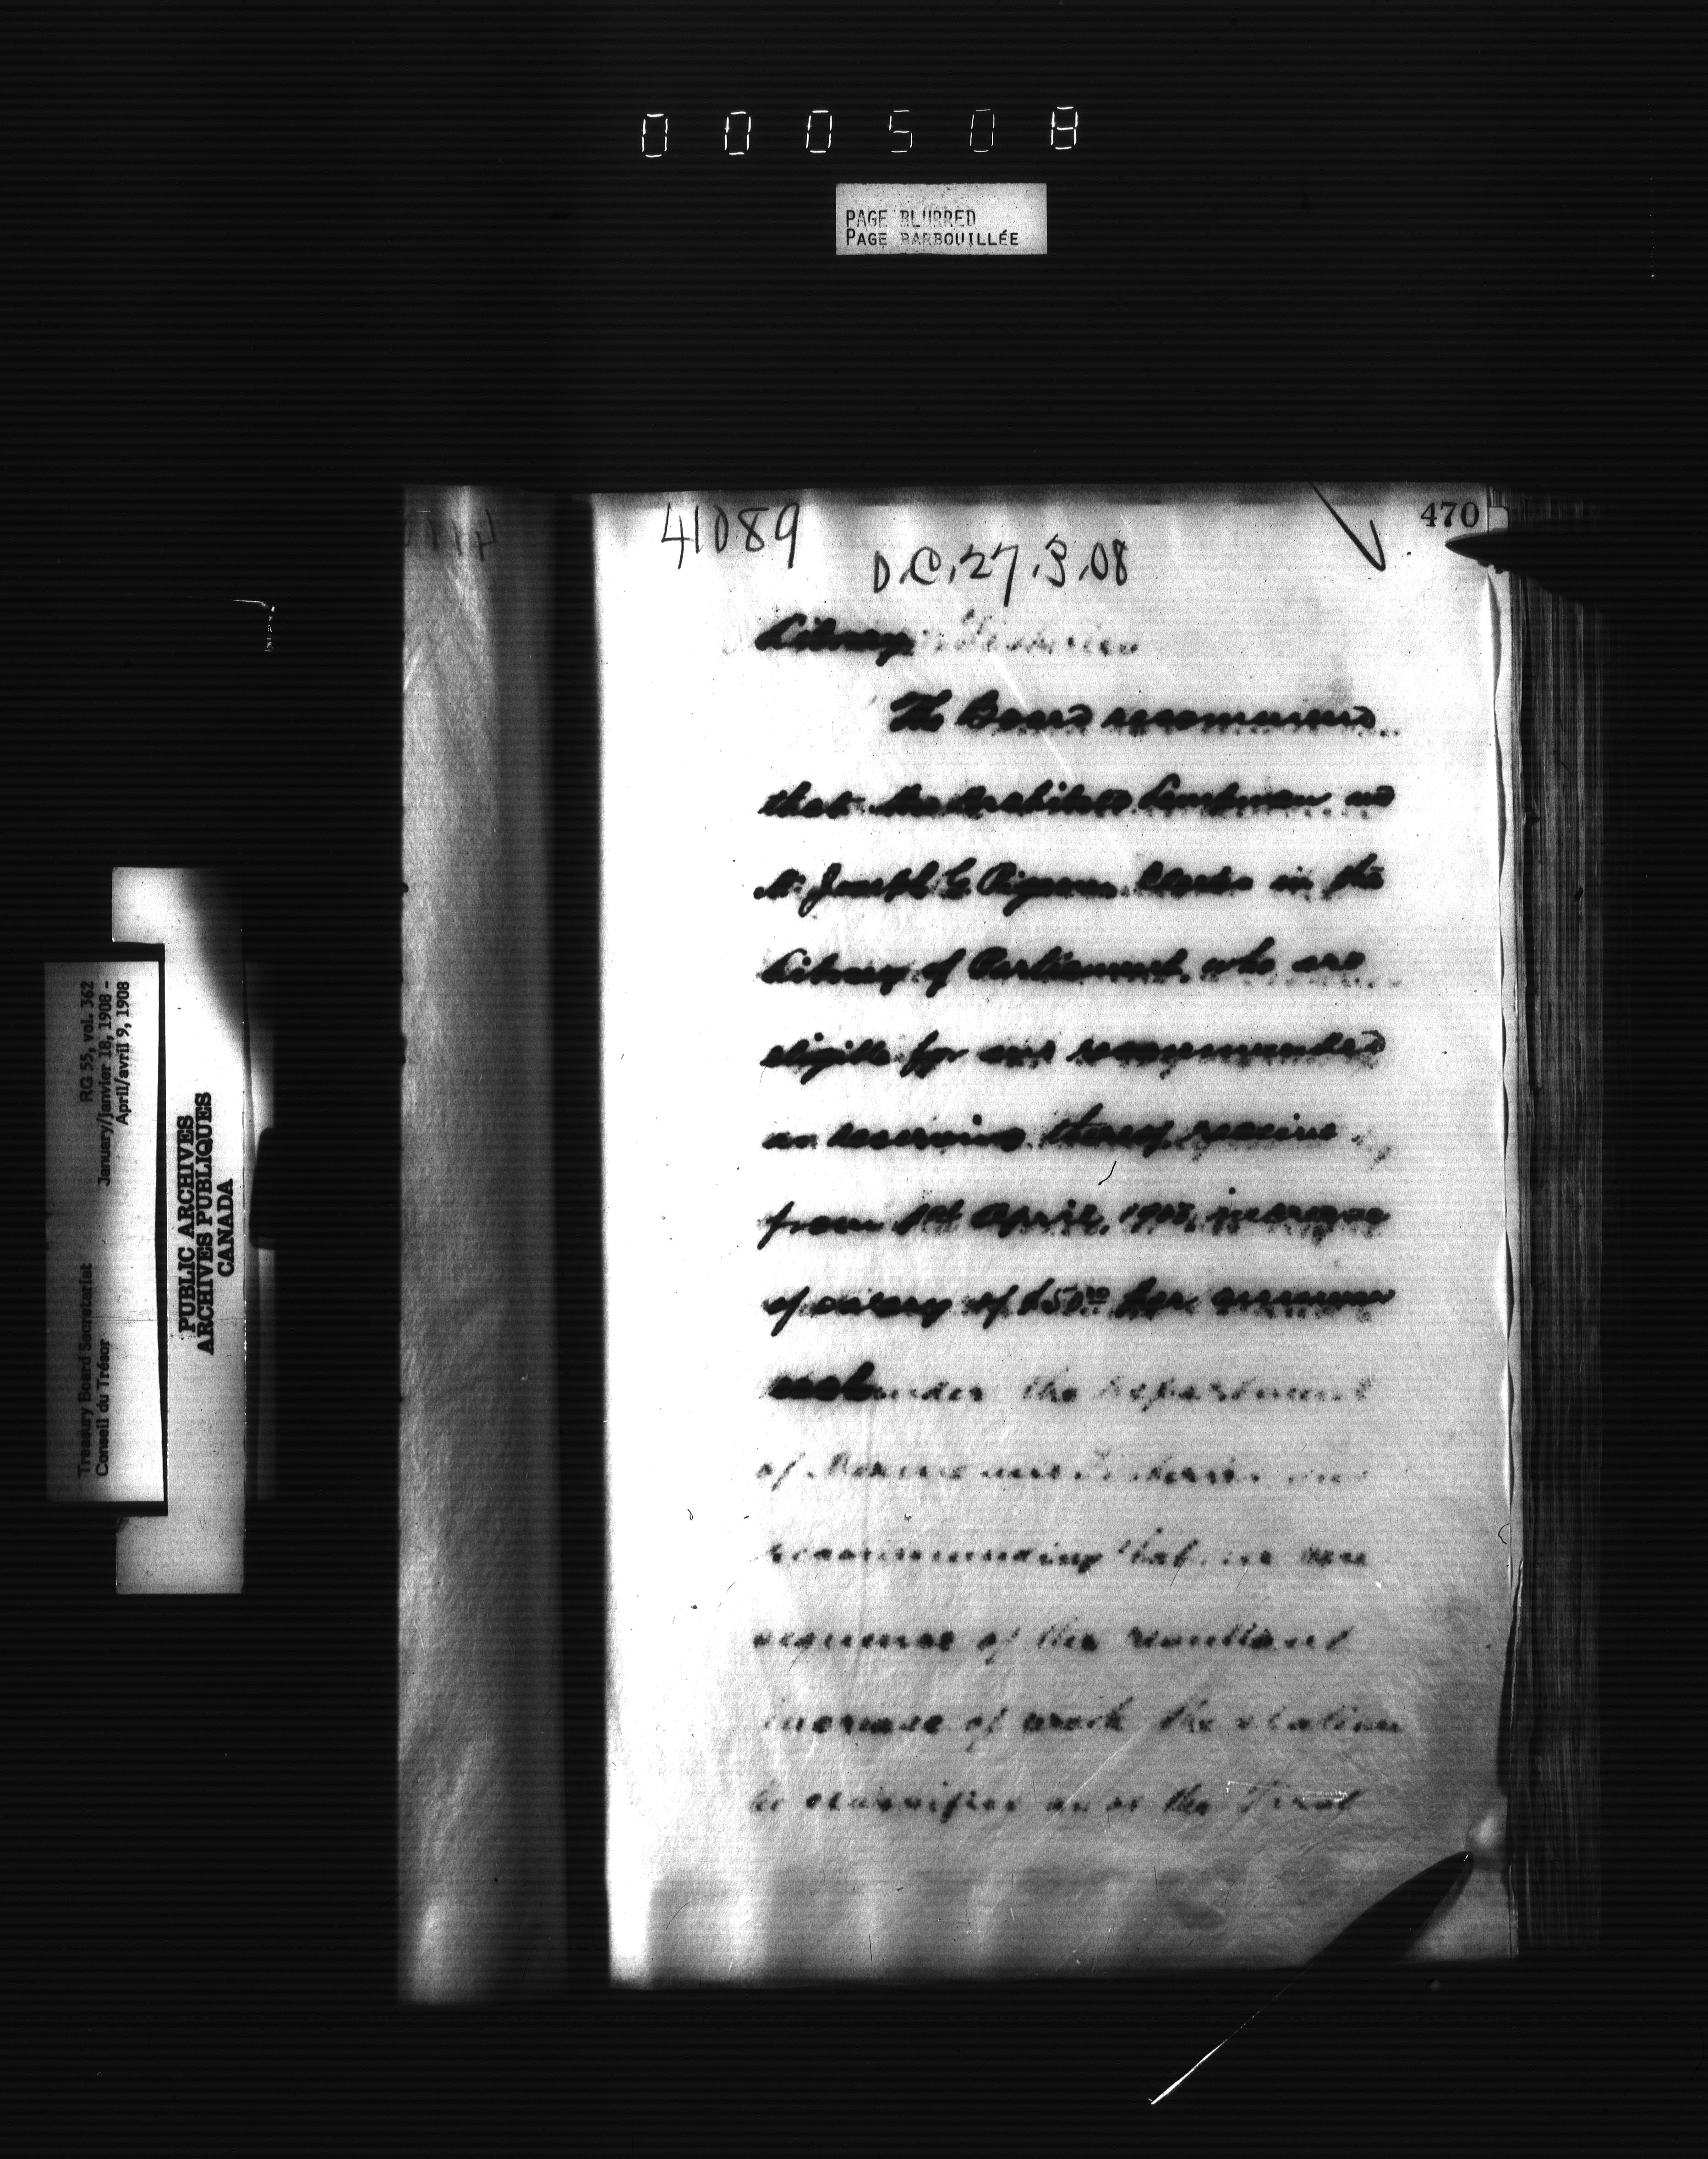 000508
PAGE BLURRED
PAGE BARBOUILLÉE
470
41089
O.C. 27.3.08
Library
The Board recommend
that
Mr Joseph G Pigeon Clerks in the
Library of Parliament, who are
eligible for and recommended
as deserving thereof, receive
from 1st April, 1908, increase
of salary of $50.00 per annum
each under the Department
of Marine and Fisheries
recommending that in con
sequence of the resultant
increase of work the station
be classified as of the First
Treasury Board Secretariat
Conseil du Trésor
RG 55, vol. 362
January/janvier 18, 1908 -
April/avril 9, 1908
PUBLIC ARCHIVES
ARCHIVES PUBLIQUES
CANADA